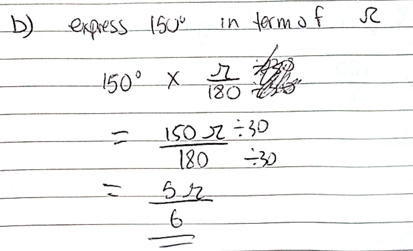 b) express 150° in term of π
150° × π/180
= 150π ÷30 / 180 ÷30
= 5π/6